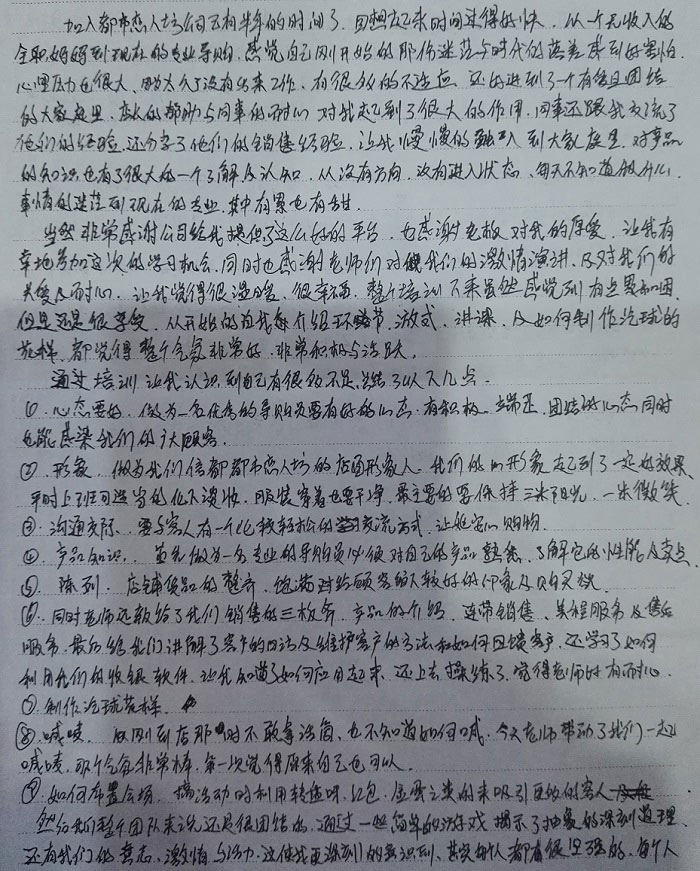 加入都市恋人坊公司已有半年的时间了，回想起来时间过得好快，从一个无收入的
全职妈妈到现在的专业导购，感觉自己刚开始的那份迷茫与时代的落差感到好害怕
心里压力也很大，因太久了没有出来工作，有很多的不适应，还好进到了一个有爱且团结
的大家庭里，店长的帮助与同事的耐心对我起到了很大的作用，同事还跟我交流了
他们的经验，还分享了他们的销售经验，让我慢慢的融入到大家庭里，对产品
的知识也有了很大的一个了解及认知，从没有方向，没有进入状态，每天不知道做什么
事情的迷茫到现在的专业，其中有累也有甜。
当然非常感谢公司给我提供了这么好的平台，也感谢老板对我的厚爱，让我有
幸地参加这次的学习机会，同时也感谢老师们对我们的激情演讲，及对我们的
关爱及耐心，让我觉得很温暖，很幸福，整个培训下来虽然感觉到有点累和困，
但是还是很享受，从开始的自我介绍环节，游戏，讲课，及如何制作汽球的
花样，都觉得整个气氛非常好，非常积极与活跃。
通过培训让我认识到自己有很多不足，总结了以下几点。
①、心态要好，做为一名优秀的导购员要有好的心态，有积极、端正、团结的心态同时
也能感染我们的广大顾客。
②、形象，做为我们信都都市恋人坊的店面形象人，我们的形象起到了一定的效果
平时上班可适当的化下淡妆，服装穿着也要干净，最主要的要保持三米阳光，一米微笑
③、沟通交际、要与客人有一个比较轻松的交流方式，让她安心购物。
④、产品知识、首先做为一名专业的导购员必须对自己的产品熟悉，了解它的性能及卖点
⑤、陈列、店铺货品的整齐，饱满对给顾客留下较好的印象及购买欲
⑥、同时老师还教给了我们销售的三板斧，产品的介绍，连带销售、美程服务及售后
服务，最后给我们讲解了客户的回访及维护客户的方法和如何回馈客户，还学习了如何
利用我们的收银软件，让我知道了如何应用起来，还上去操练了，觉得老师好有耐心。
⑦、制作汽球花样，
⑧、喊唛，从刚到店那时不敢拿话筒，也不知道如何喊，今天老师带动了我们一起
喊唛，那个气氛非常棒，第一次觉得原来自己也可以。
⑨、如何布置会场，搞活动时利用转盘呀，红包，金蛋之类的来吸引更多的客人
然给我们整个团队来说还是很团结的，通过一些简单的游戏揭示了抽象的深刻道理
还有我们的斗志、激情与活力，这使我更深刻的意识到，其实每个人都有很坚强的，每个人